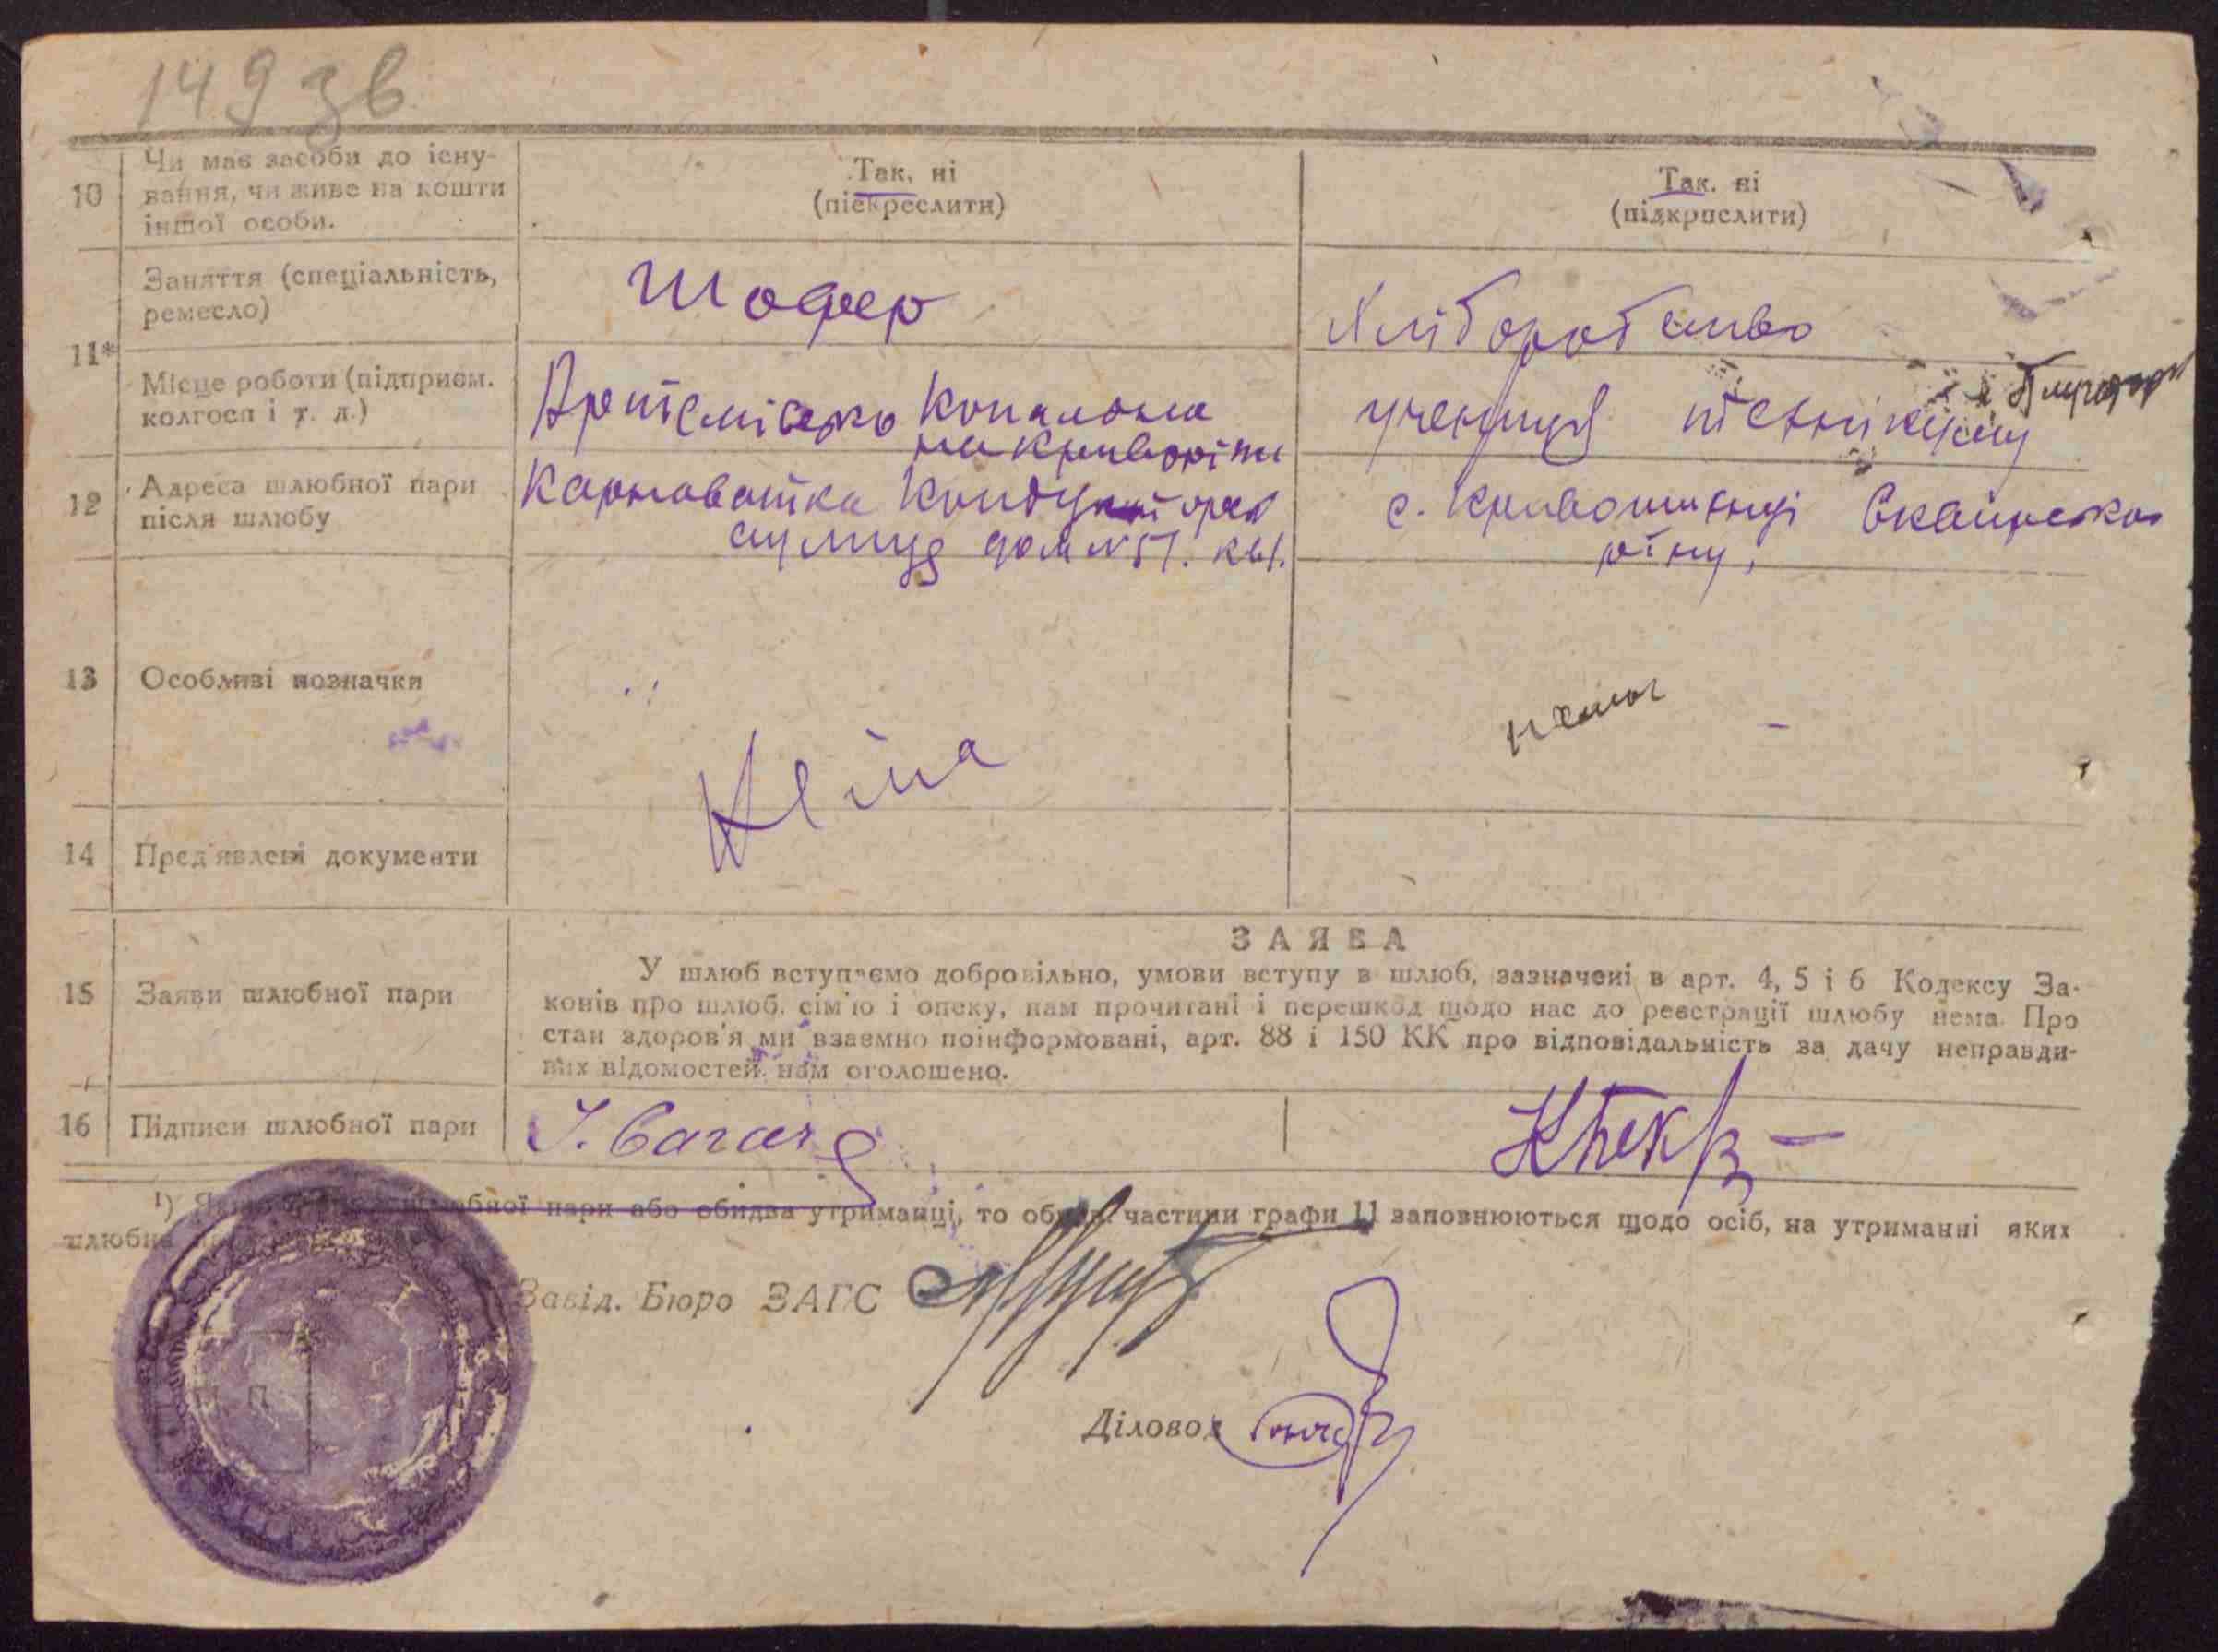 149 зв
10
Чи має засоби до існу-
вання, чи живе на кошти
іншої особи.
Так, ні
(піекреслити)
Так. ні
(підкрпслити)
11*
Заняття (спеціальність,
ремесло)
Шофер
Хліборобство
Місце роботи (підприєм.
колгосп і т. д.)
Копальня
учениця технікуму
12
Адреса шлюбної пари
після шлюбу
Карнаватка
вулиця дом №51. кв1.
с. Кривошиїнці Сквирсько
р-ну,
13
Особливі позначки
Нема
нема
14
Пред'явлені документи
15
Заяви шлюбної пари
ЗАЯВА
У шлюб вступаємо добровільно, умови вступу в шлюб, зазначені в арт. 4, 5 і 6 Кодексу За-
конів про шлюб. сім'ю і опеку, нам прочитані і перешкод щодо нас до реєстрації шлюбу нема. Про
стан здоров'я ми взаємно поінформовані, арт. 88 і 150 КК про відповідальність за дачу неправди-
вих відомостей нам оголошено.
16
Підписи шлюбної пари
¹) пари або обидва утриманці, то частини графи 11 заповнюються щодо осіб, на утриманні яких
Завід. Бюро ЗАГС
Діловод